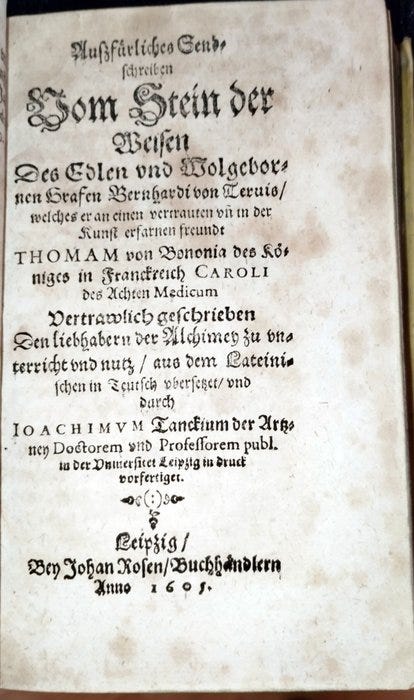 Außfürliches Send-
schreiben
Vom Stein der
Weisen
Des Edlen vnd Wolgebor-
nen Grafen Bernhardi von Teruis/
welches er an einen vertrauten vñ in der
Kunst erfarnen freundt
THOMAM von Bononia des Kö-
niges in Franckreich CAROLI
des Achten Medicum
Vertrawlich geschrieben
Den liebhabern der Alchimey zu vn-
terricht vnd nutz / aus dem Lateini-
schen in Teutsch vbersetzet/ vnd
durch
IOACHIMVM Tanckium der Artz-
ney Doctorem vnd Professorem publ.
in der Vniuersitet Leipzig in druck
vorfertiget.
(:)
Leipzig/
Bey Johan Rosen/ Buchhändlern
Anno 1605.